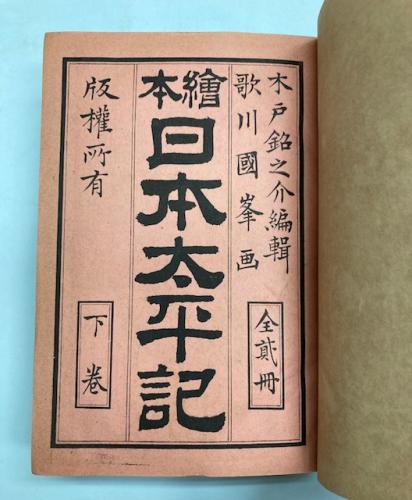 木戸銘之介編輯
歌川國峯画
全貳冊
繪本
日本太平記
版權所有
下卷